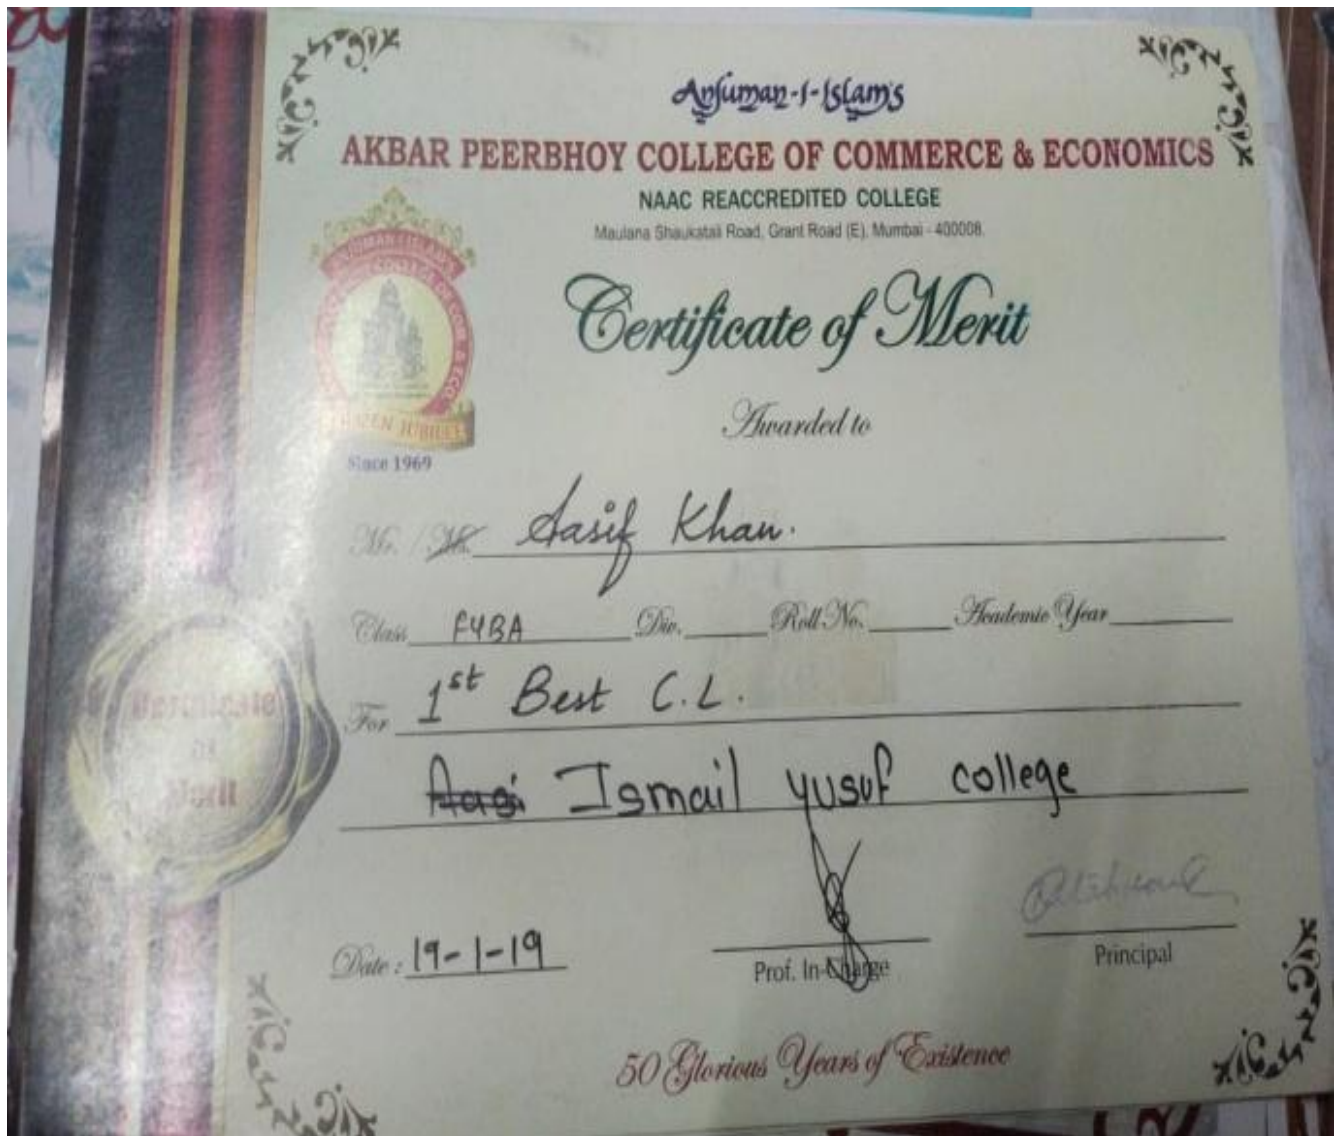 Anjuman-I-Islam's
AKBAR PEERBHOY COLLEGE OF COMMERCE & ECONOMICS
NAAC REACCREDITED COLLEGE
Maulana Shaukatali Road, Grant Road (E), Mumbai - 400008.
ANJUMAN I ISLAM'S
COLLEGE OF COMM. & ECO.
JUBILEE
Since 1969
Certificate of Merit
Awarded to
Mr. / Ms. Aasif Khan.
Class FYBA Div. Roll No. Academic Year
For 1st Best C.L.
Ismail yusuf college
Certificate
of
Merit
Date : 19-1-19
Prof. In-Charge
Principal
50 Glorious Years of Existence